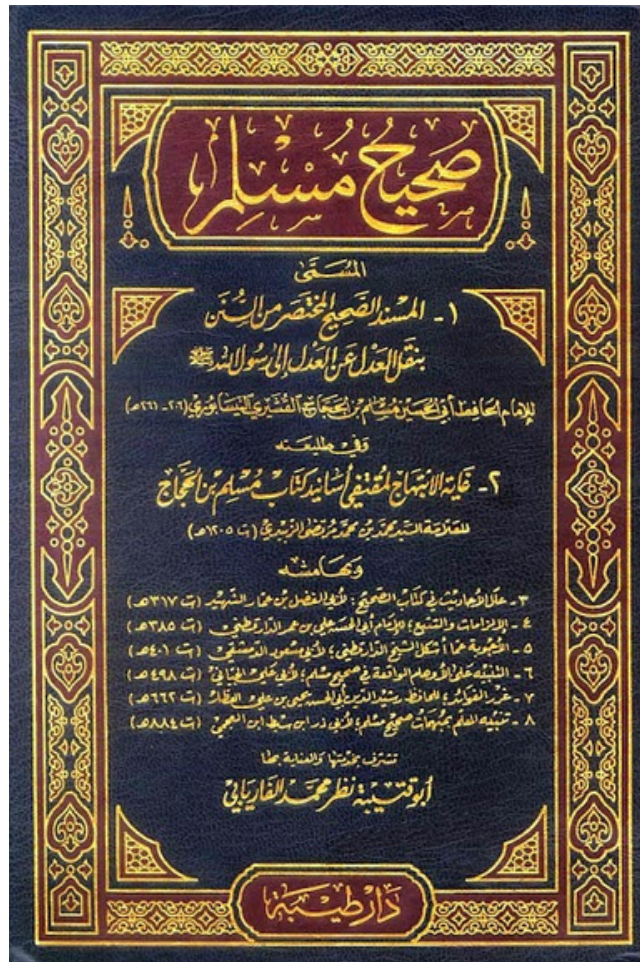 صَحِيحُ مُسْلِم
المُسَمَّى
١- المسند الصحيح المختصر من السنن
بنقل العدل عن العدل إلى رسول الله ﷺ
للإمام الحافظ أبي الحسين مسلم بن الحجاج القشيري النيسابوري (٢٠٦ - ٢٦١هـ)
وفي طليعته
٢- غاية الابتهاج لمقتفي أسانيد كتاب مسلم بن الحجاج
للعلامة السيد محمد بن محمد مرتضى الزبيدي (ت ١٢٠٥هـ)
وبهامشه
٣- علل الأحاديث في كتاب الصحيح؛ لأبي الفضل بن عمار الشهيد (ت ٣١٧هـ)
٤- الإلزامات والتتبع؛ للإمام أبي الحسن علي بن عمر الدارقطني (ت ٣٨٥هـ)
٥- الأجوبة عما أشكل الشيخ الدارقطني؛ لأبي مسعود الدمشقي (ت ٤٠١هـ)
٦- التنبيه على الأوهام الواقعة في صحيح مسلم؛ لأبي علي الجياني (ت ٤٩٨هـ)
٧- غرر الفوائد؛ للحافظ رشيد الدين أبي الحسن يحيى بن علي العطار (ت ٦٦٢هـ)
٨- تنبيه المعلم بمبهمات صحيح مسلم؛ لأبي ذر ابن سبط ابن العجمي (ت ٨٨٤هـ)
تشرف بخدمتها والعناية بها
أبو قتيبة نظر محمد الفاريابي
دار طيبة